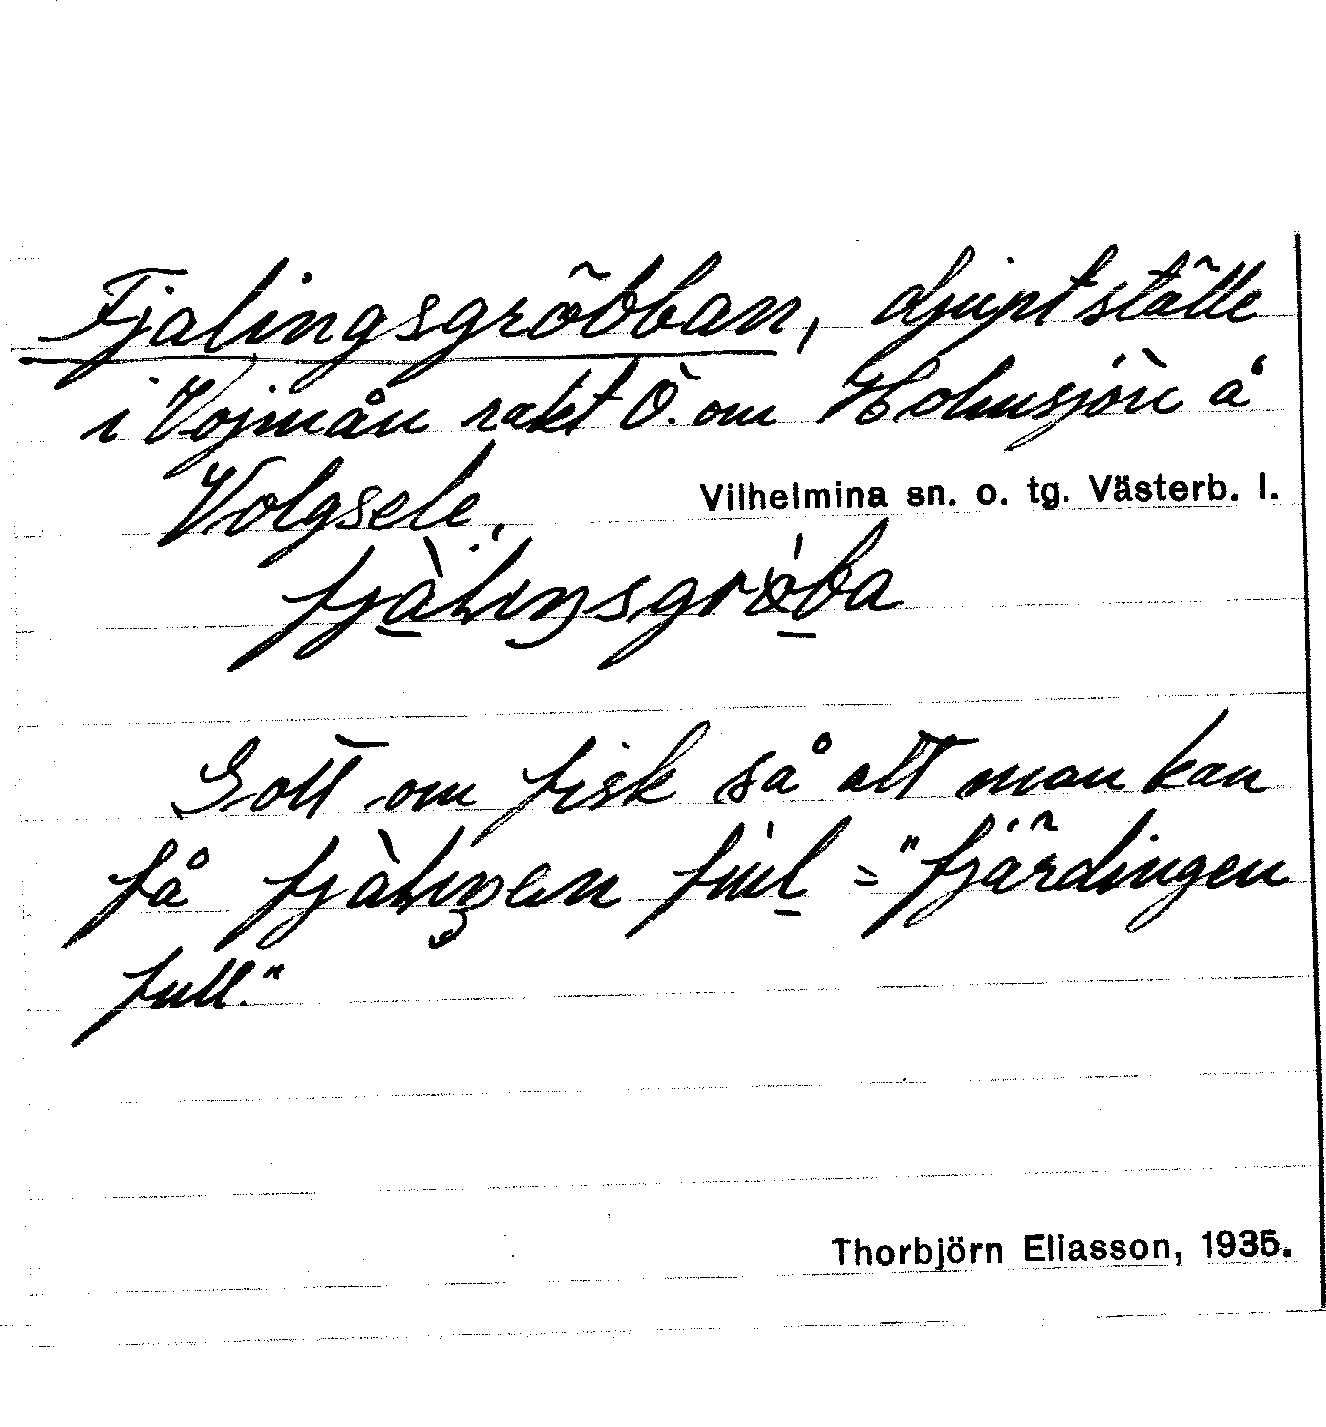 Fjalingsgröbban, djupt ställe
i Vojmån rakt Ö. om Holmsjön å
Volgsele.
Vilhelmina sn. o. tg. Västerb. l.
Gott om fisk så att man kan
få = "fjärdingen
full."
Thorbjörn Eliasson, 1935.